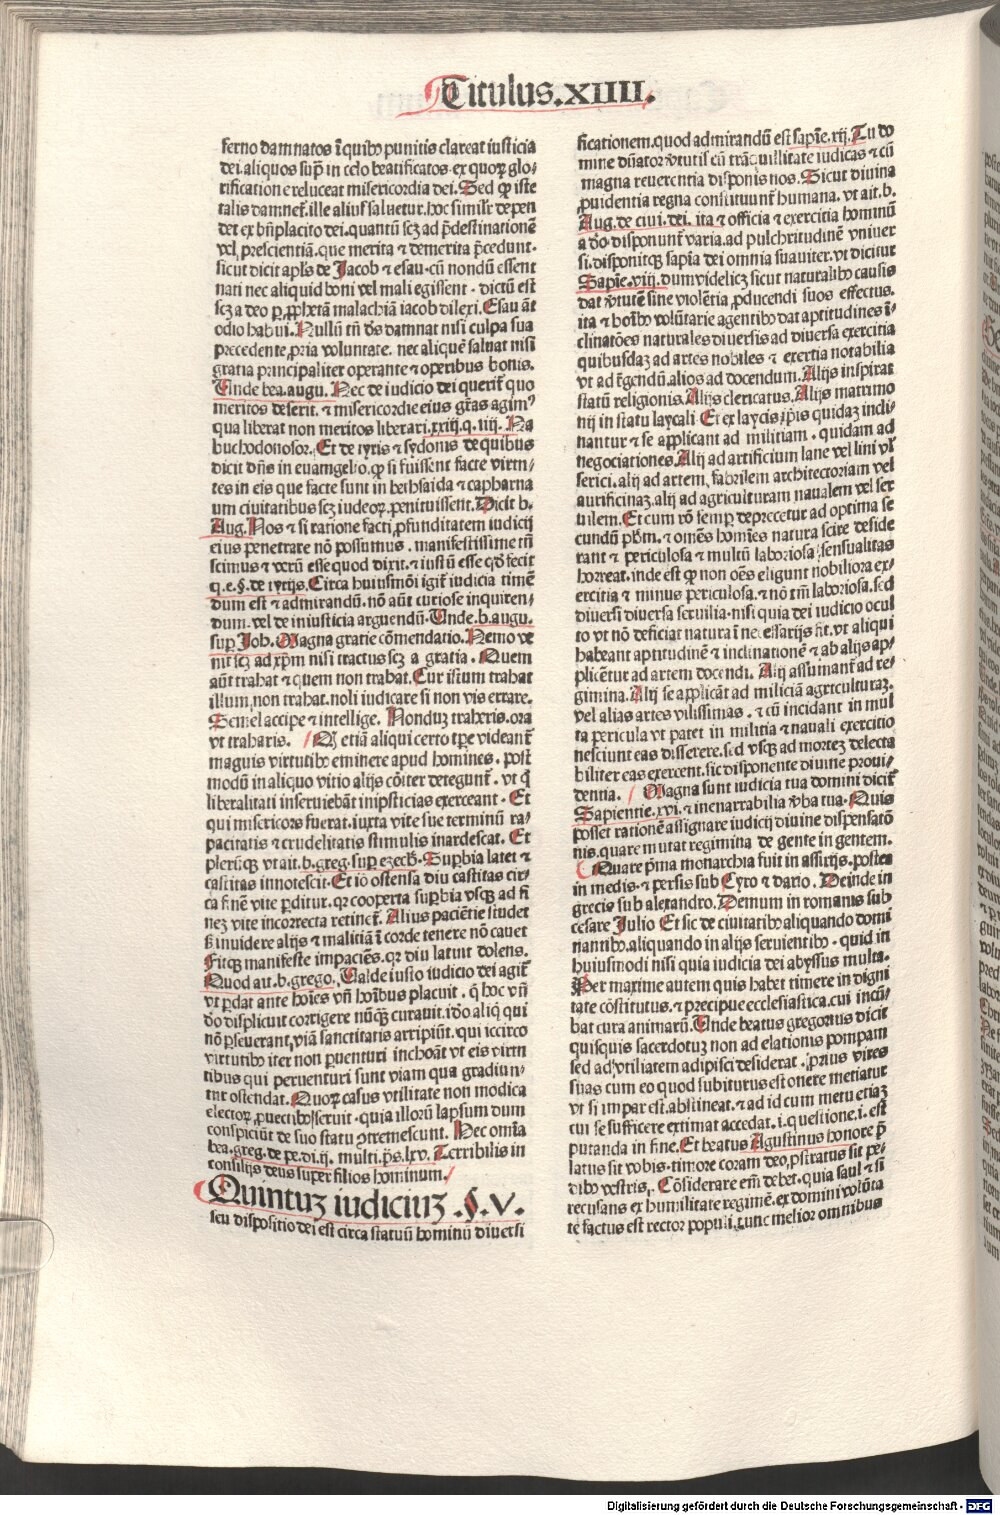 Titulus.XIIII.
ferno damnatos ī quibꝰ punitis clareat iusticia
dei. aliquos sup̄ in celo beatificatos. ex quoꝝ glo⸗
rificatione reluceat misericordia dei. Sed ꝙ iste
talis damnet̄. ille aliuſ saluetur. hoc simil̄r depen
det ex bn̄placito dei. quantū scꝫ ad p̄destinationē
vel prescientiā. que merita ⁊ demerita p̄cedunt.
sicut dicit apl̄s de Jacob ⁊ esau. cū nondū essent
nati nec aliquid boni vel mali egissent. dictū est
scꝫ a deo ꝑ ꝓphetā malachiā iacob dilexi. Esau āt
odio habui. Nullū tn̄ dēs damnat nisi culpa sua
precedente ꝓpria voluntate. nec aliquē saluat nisi
gratia principaliter operante ⁊ operibus bonis.
Unde bea. augu. Nec de iudicio dei querit̄ quo
meritos deserit. ⁊ misericordie eius gr̄as agimꝰ
qua liberat non meritos liberari. xxiij. q. iiij. Na
buchodonosor. Et de tyris ⁊ sydonis de quibus
dicit dn̄s in euamgelio. ꝙ si fuissent facte virtu⸗
tes in eis que facte sunt in bethsaida ⁊ capharna
um ciuitatibus scꝫ iudeoꝝ. penituissent. Dicit b.
Aug. Nos ⁊ si ratione facti ꝓfunditatem iudicij
eius penetrare nō possumus. manifestissime tn̄
scimus ⁊ verū esse quod dixit. ⁊ iustū esse qd̄ fecit
q. e. §. de tyrijs. Circa huiusmōi igit̄ iudicia timē
dum est ⁊ admirandū. nō aūt curiose inquiren⸗
dum. vel de iniusticia arguendū. Unde. b. augu.
suꝑ Joh. Magna gratie cōmendatio. Nemo ve
nit scꝫ ad xp̄m nisi tractus scꝫ a gratia. Quem
aūt trahat ⁊ quem non trahat. Cur istum trahat
illum non trahat. noli iudicare si non vis errare.
Semel accipe ⁊ intellige. Nonduꝫ traheris. ora
vt traharis. Qȝ etiā aliqui certo tꝑe videant̄
magnis virtutibꝰ eminere apud homines. post
modū in aliquo vitio alijs cōiter detegunt̄. vt q̄
liberalitati inseruiebāt in ipsticias exerceant. Et
qui misericors fuerat. iuxta vite sue terminū ra⸗
pacitatis ⁊ crudelitatis stimulis inardescat. Et
pleriqꝫ vt ait. b. greg. suꝑ ezech. Suꝑbia latet ⁊
castitas innotescit. Et iō ostensa diu castitas cir⸗
ca finē vite ꝑditur. qꝛ cooperta suꝑbia vsqꝫ ad fi
neꝫ vite incorrecta retinet̄. Alius paciētie studet
sꝫ inuidere alijs ⁊ maliciā ī corde tenere nō cauet
Fitqꝫ manifeste impaciēs. qꝛ diu latuit dolens.
Quod au. b. grego. Ualde iusto iudicio dei agit̄
vt ꝑdat ante hoīes vn̄ hoībus placuit. q̄ hoc vn̄
dō displicuit corrigere nūqꝫ curauit. ido aliq̄ qui
nō ꝑseuerant. viā sanctitatis arripiūt. qui iccirco
virtutibꝰ iter non ꝑuenturi inchoāt vt eis virtu
tibus qui peruenturi sunt viam qua gradiun⸗
tur ostendat. Quoꝝ casus vtilitate non modica
electoꝝ ꝓuectibꝰ seruit. quia illoꝝ lapsum dum
conspiciūt de suo statu ꝯtremescunt. Nec omīa
bea. greg. de pe. di. ij. multi. p̄s. lxv. Terribilis in
consilijs deus super filios hominum.
Quintuꝫ iudiciuꝫ. §. V.
seu dispositio dei est circa statuū hominū diuersi
ficationem. quod admirandū est sapīe. xij. Tu do
mine dn̄ator v̓tutis cū trāquillitate iudicas ⁊ cū
magna reuerentia disponis nos. Sicut diuina
ꝓuidentia regna constituunt̄ humana. vt ait. b.
Aug. de ciui. dei. ita ⁊ officia ⁊ exercitia hominū
a dō disponunt̄ varia. ad pulchritudinē vniuer
si. disponitqꝫ sapīa dei omnia suauiter. vt dicitur
Sapīe. viij. dum videlicꝫ sicut naturalibꝰ causis
dat v̓tutē sine violētia ꝓducendi suos effectus.
ita ⁊ hoībꝰ volūtarie agentibꝰ dat aptitudines ī⸗
clinatiōes naturales diuersis ad diuersa exercitia
quibusdaꝫ ad artes nobiles ⁊ exertia notabilia
vt ad r̄gendū. alios ad docendum. Alijs inspirat
statū religionis. Alijs clericatus. Alijs matrimo
nij in statu laycali. Et ex laycis ip̄is quidaꝫ incli⸗
nantur ⁊ se applicant ad militiam. quidam ad
negociationes. Alij ad artificium lane vel lini vl̄
serici. alij ad artem fabrilem architectoriam vel
aurificinaꝫ. alij ad agriculturam naualem vel ser
uilem. Et cum vō semꝑ deprecetur ad optima se
cundū pb̄m. ⁊ omēs homīes natura scire deside
rant ⁊ periculosa ⁊ multū laboriosa sensualitas
horreat. inde est ꝙ non oēs eligunt nobiliora ex⸗
ercitia ⁊ minus periculosa. ⁊ nō tm̄ laboriosa. sed
diuersi diuersa seruilia. nisi quia dei iudicio ocul
to vt nō deficiat natura ī necessarijs fit. vt aliqui
habeant aptitudinē ⁊ inclinationē ⁊ ab alijs ap⸗
plicētur ad artem docendi. Alij assumant̄ ad re⸗
gimina. Alij se applicāt ad militiā agriculturaꝫ.
vel alias artes vilissimas. ⁊ cū incidant in mul
ta pericula vt patet in militia ⁊ nauali exercitio
nesciunt eas disserere. sed vsqꝫ ad morteꝫ delecta
biliter eas exercent. sic disponente diuine proui⸗
dentia. Magna sunt iudicia tua domini dicit̄
Sapientie. xvi. ⁊ inenarrabilia v̓ba tua. Quis
posset rationē assignare iudicij diuine dispensatō
nis. quare mutat regimina de gente in gentem.
Quare p̄ma monarchia fuit in assurijs. postea
in medis. ⁊ persis sub Cyro ⁊ dario. Deinde in
grecis sub alexandro. Demum in romanis sub
cesare Julio Et sic de ciuitatibꝰ aliquando domi
nantibꝰ. aliquando in alijs seruientibꝰ. quid in
huiusmodi nisi quia iudicia dei abyssus multa.
Per maxime autem quis habet timere in digni
tate cōstitutus. ⁊ precipue ecclesiastica. cui incū⸗
bat cura animarū. Unde beatus gregorius dicit
quisquis sacerdotuꝫ non ad elationis pompam
sed ad vtilitatem adipisci desiderat. prius vires
suas cum eo quod subiturus est onere metiatur
vt si impar est. abstineat. ⁊ ad id cum metu etiaꝫ
cui se sufficere extimat accedat. i. questione. i. est
putanda in fine. Et beatus Agustinus honore p̄
latus sit vobis. timore coram deo. pstratus sit pe⸗
dibꝰ vestris. Cōsiderare em̄ debet. quia saul ⁊ si
recusans ex humilitate regimē. ex domini volūta
te factus est rector populi. tunc melior omnibus
Digitalisierung gefördert durch die Deutsche Forschungsgemeinschaft - DFG